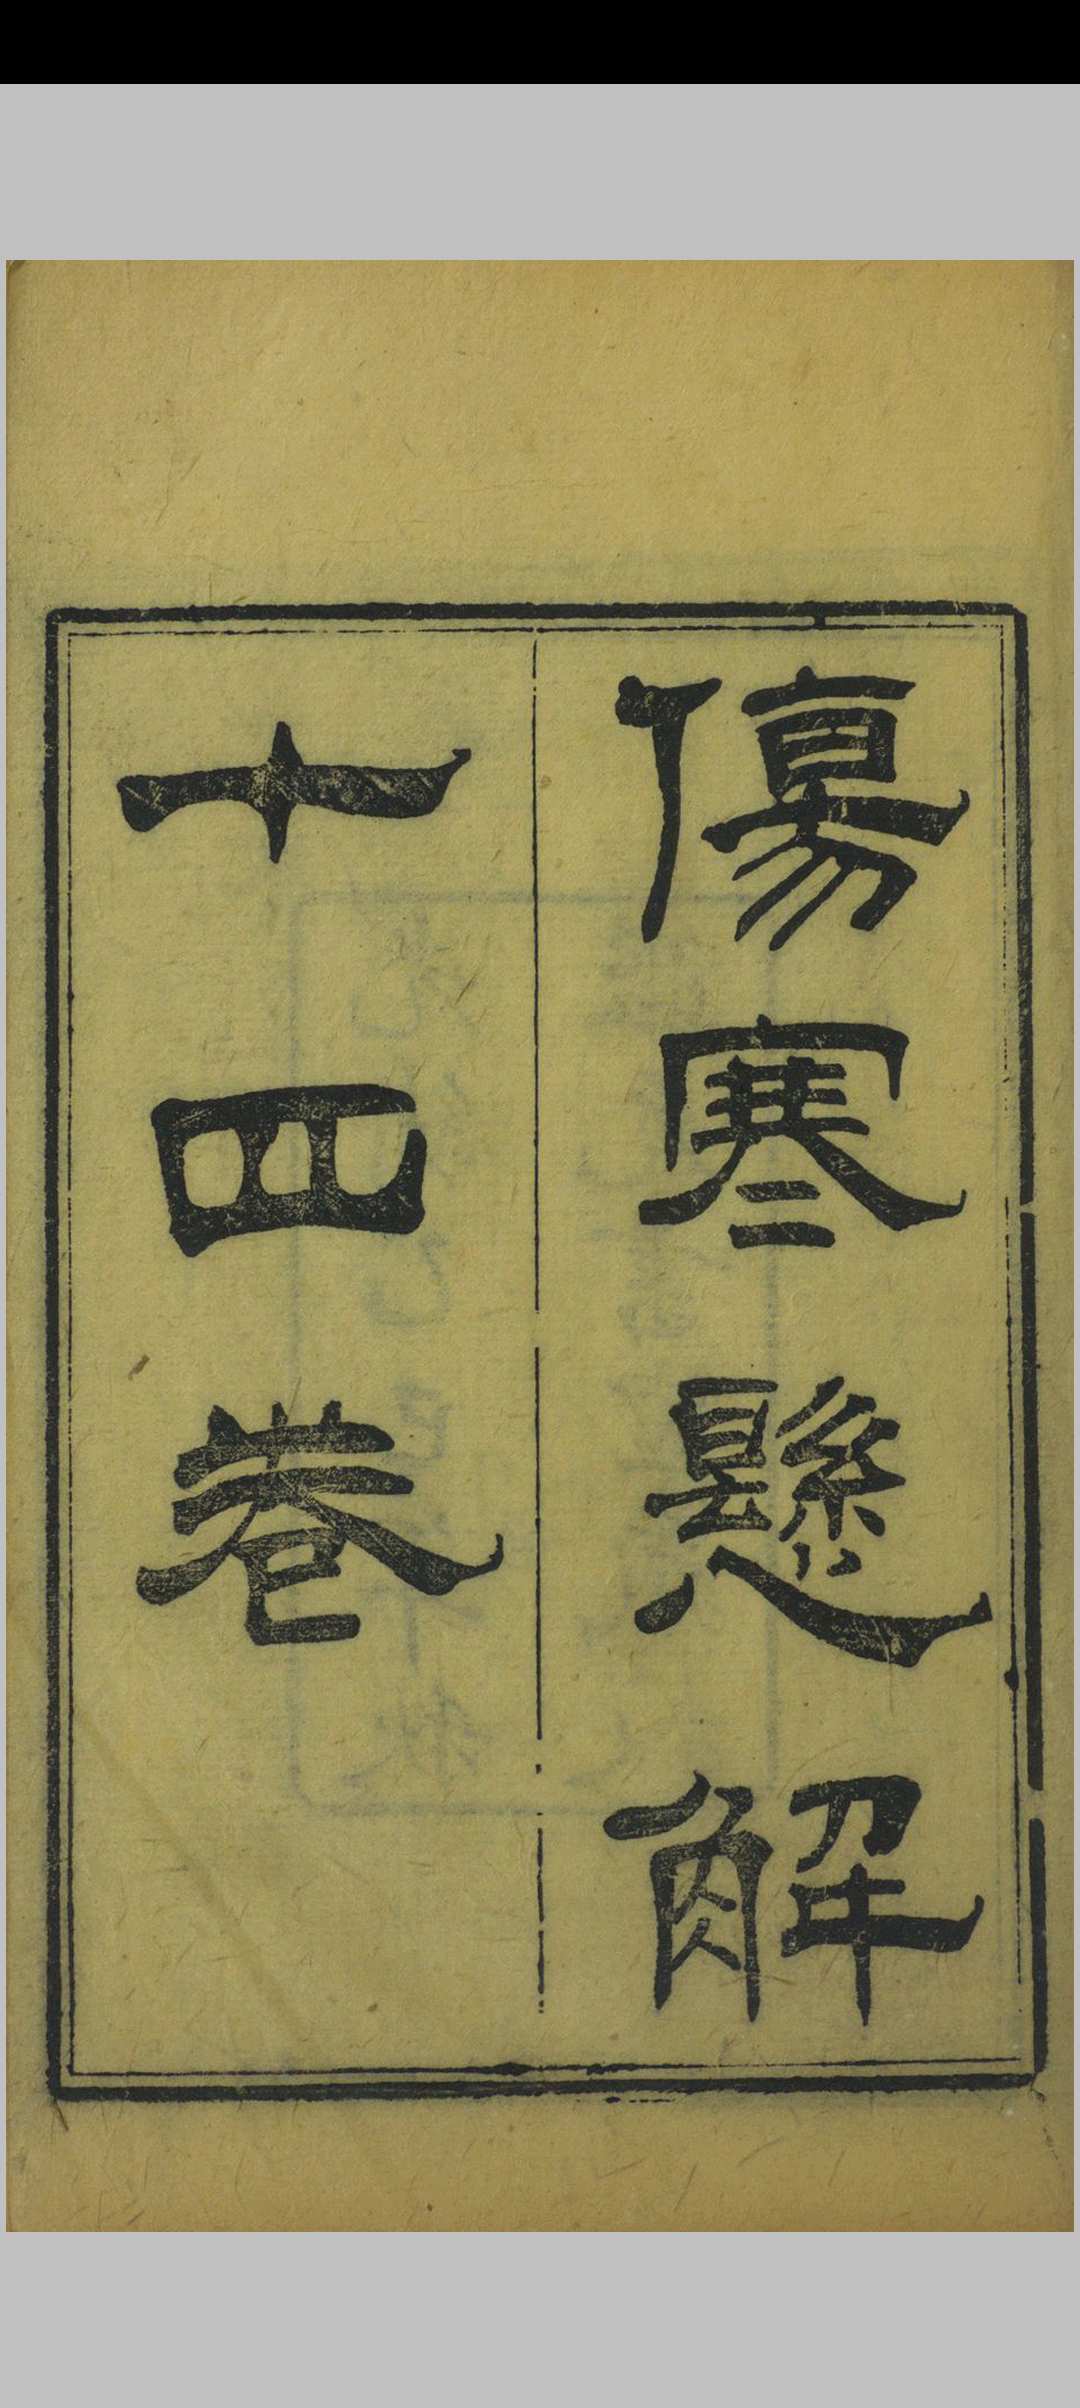 傷寒懸解
十四卷